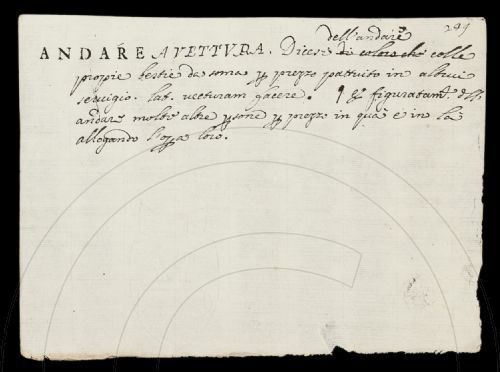 dell'andare 299
ANDÁRE A VETTVRA. Dicesi di coloro che colle
propie bestie da soma p prezzo pattuito in altrui
servigio. lat. vecturam facere. ¶ E figuratam.
andare molte altre psone p prezzo in quà e in là
allogando l'opa loro.